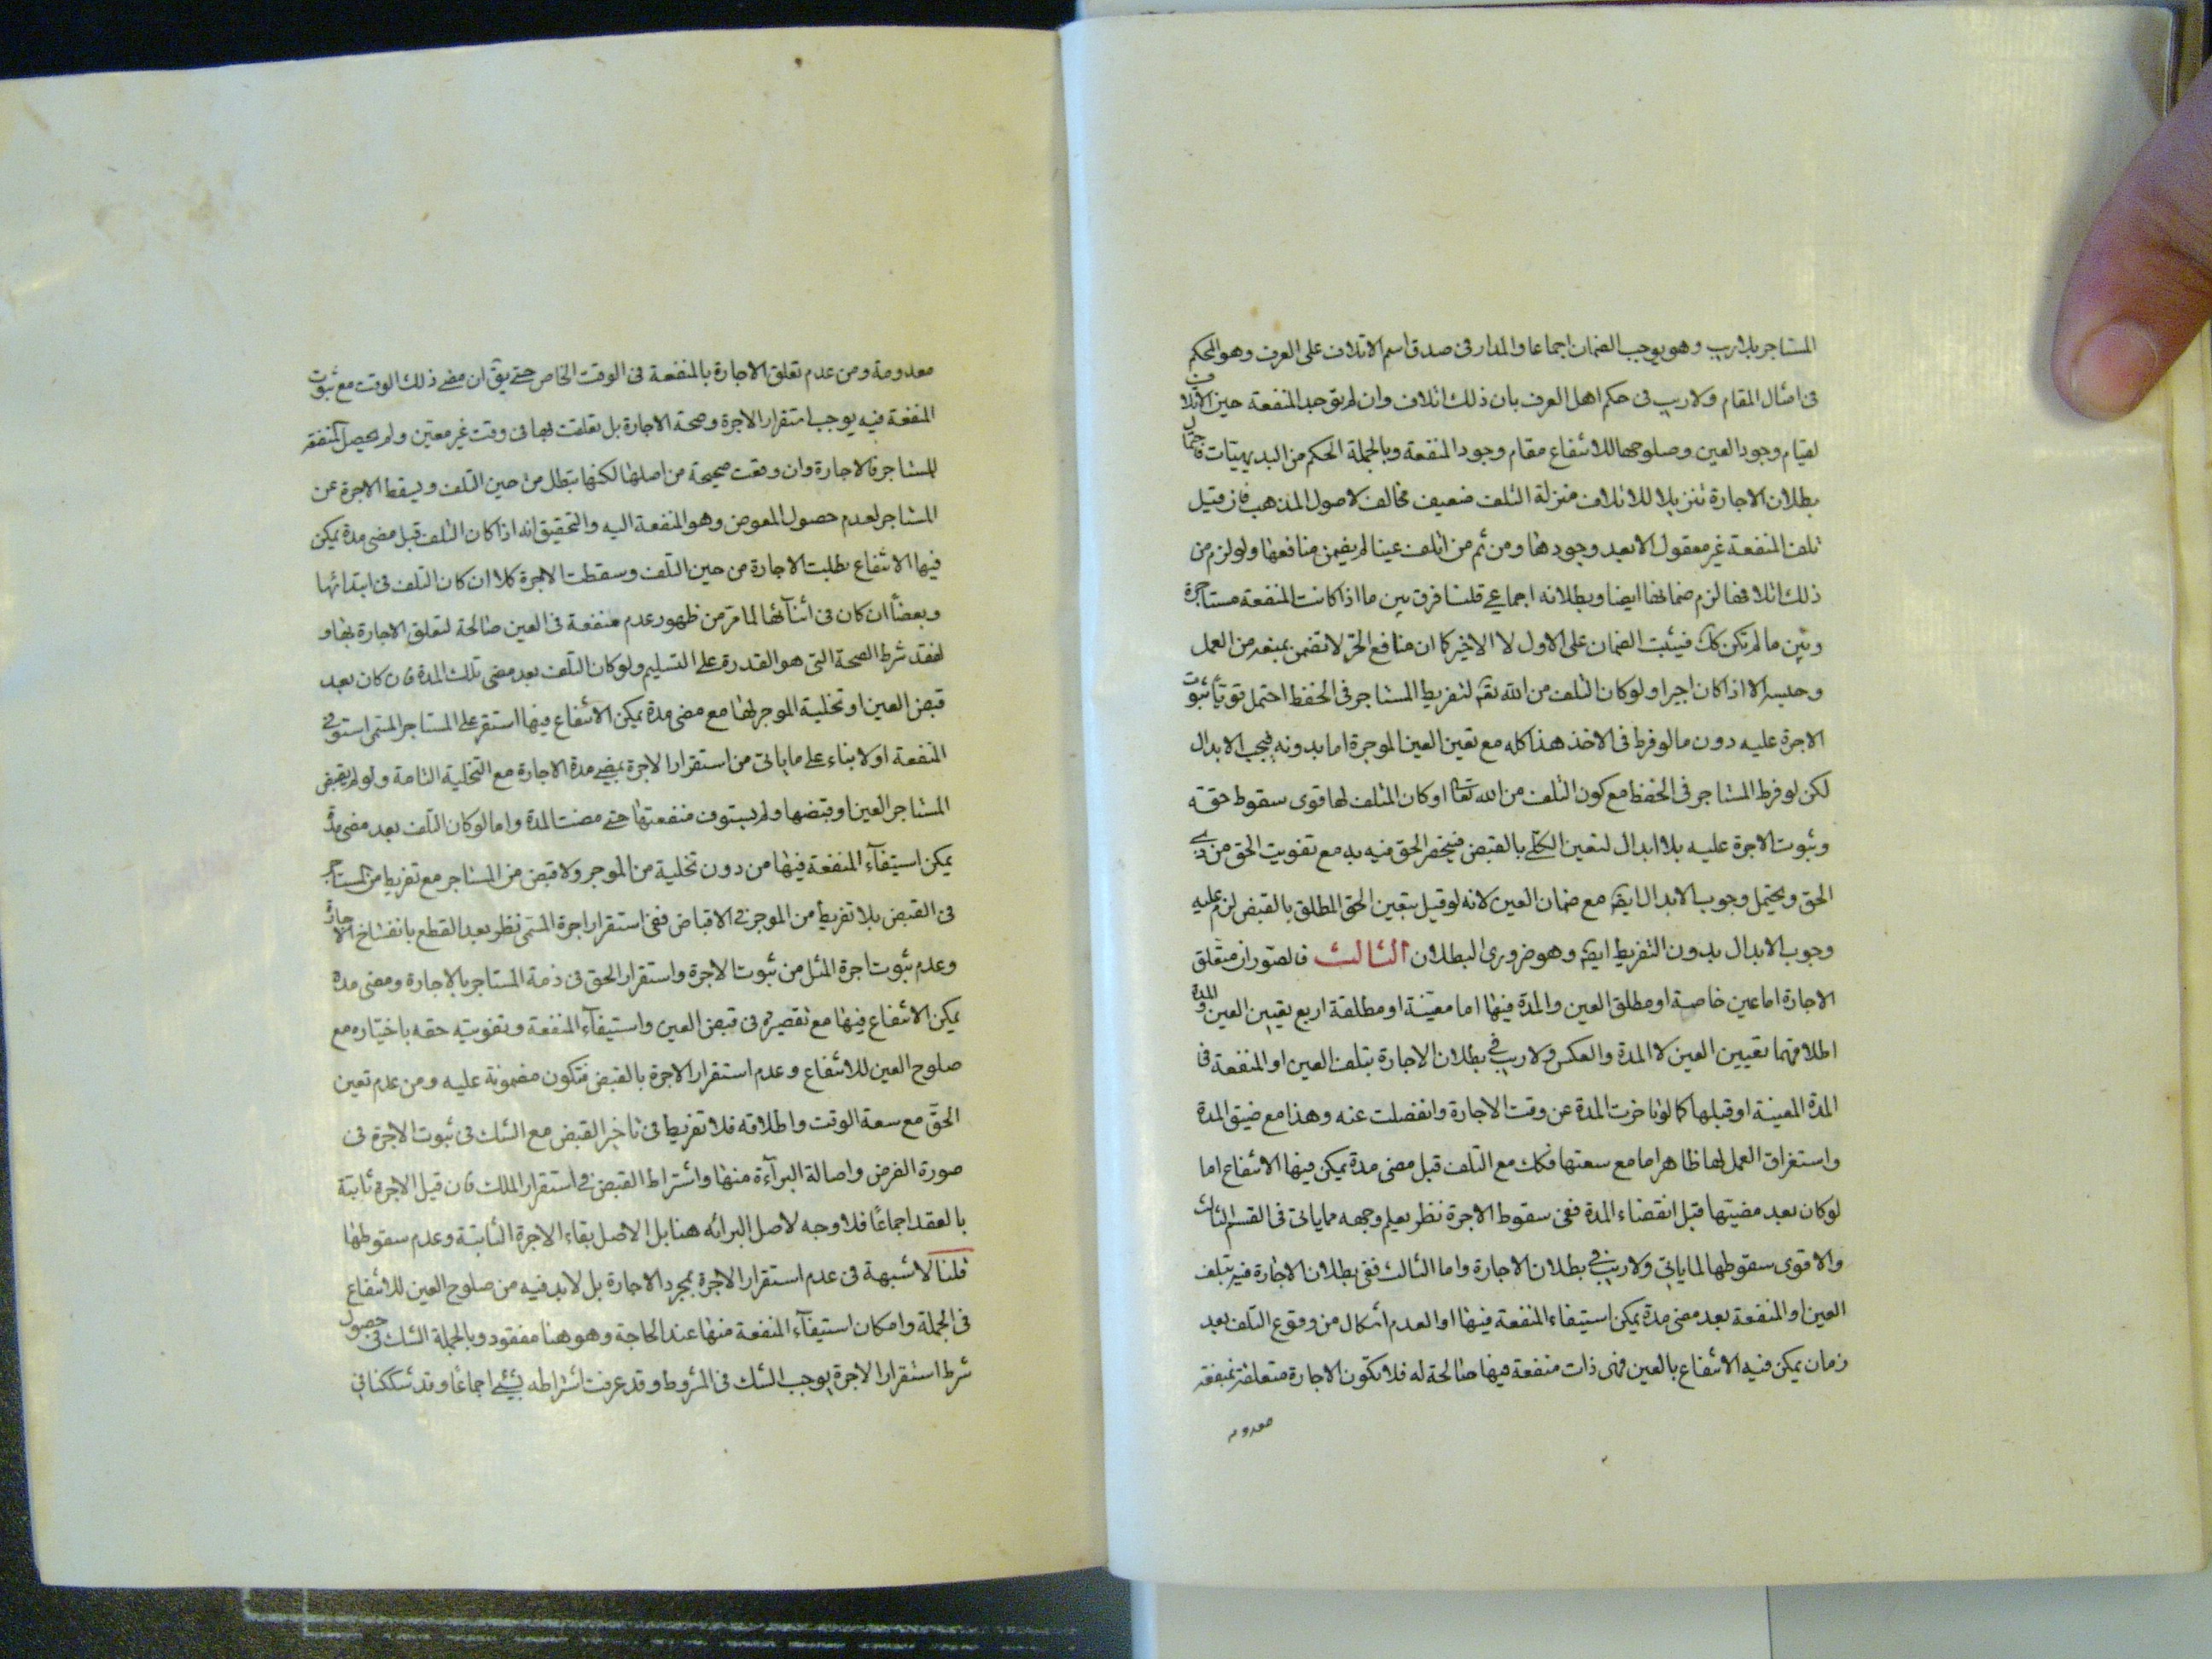 المستاجر بلا ريب وهو يوجب الضمان اجماعا والمدار فى صدق اسم الاتلاف على العرف وهو المحكم
فى امثال المقام ولا ريب فى حكم اهل العرف بان ذلك اتلاف وان لم توجد المنفعة حين الاتلاف
لقيام وجود العين وصلوحها للانتفاع مقام وجود المنفعة وبالجملة الحكم من البديهيّات فاحتمال
بطلان الاجارة تنزيلا للاتلاف منزلة التلف ضعيف مخالف لاصول المذهب فان قيل
تلف المنفعة غير معقول الا بعد وجودها ومن ثم من اتلف عينا لم يضمن منافعها ولو لزم من
ذلك اتلافها لزم ضمانها ايضا وبطلانه اجماعي قلنا فرق بين ما اذا كانت المنفعة مستاجرة
وبين ما لم تكن كك فيثبت الضمان على الاول لا الاخير كما ان منافع الحرّ لا تضمن بمنعه من العمل
وحبسه الا اذا كان اجيرا ولو كان التلف من الله تعالى لتفريط المستاجر فى الحفظ احتمل قويّاً ثبوت
الاجرة عليه دون ما لو فرط فى الاخذ هذا كله مع تعين العين الموجرة اما بدونه فيجب الابدال
لكن لو فرط المستاجر فى الحفظ مع كون التلف من الله تعالى او كان المتلف لها قوى سقوط حقه
وثبوت الاجرة عليه بلا ابدال لتعين الكلّي بالقبض فينحصر الحق فيه به مع تفويت الحق من ذي
الحق ويحتمل وجوب الابدال ايضا مع ضمان العين لانه لو قيل بتعين الحق المطلق بالقبض لزم عليه
وجوب الابدال بدون التفريط ايضا وهو ضرورى البطلان الثالث فالصور ان متعلق
الاجارة اما عين خاصة او مطلق العين والمدة فيها اما معيّنة او مطلقة اربع تعيين العين والمدة
اطلاقهما تعيين العين لا المدة والعكس ولا ريب في بطلان الاجارة بتلف العين او المنفعة فى
المدة المعينة او قبلها كما لو تاخرت المدة عن وقت الاجارة وانفصلت عنه وهذا مع ضيق المدة
واستغراق العمل لها ظاهر اما مع سعتها فكك مع التلف قبل مضى مدة يمكن فيها الانتفاع اما
لو كان بعد مضيها قبل انقضاء المدة ففى سقوط الاجرة نظر يعلم وجهه مما ياتى فى القسم الثالث
والاقوى سقوطها لما ياتي ولا ريب في بطلان الاجارة واما الثالث ففى بطلان الاجارة فيه بتلف
العين او المنفعة بعد مضى مدة يمكن استيفاء المنفعة فيها او العدم اشكال من وقوع التلف بعد
زمان يمكن فيه الانتفاع بالعين فهى ذات منفعة فيها صالحة له فلا تكون الاجارة متعلقة بمنفعة
معدومة
معدومة ومن عدم تعلق الاجارة بالمنفعة فى الوقت الخاص حتى يق ان مضى ذلك الوقت مع ثبوت
المنفعة فيه يوجب استقرار الاجرة وصحة الاجارة بل تعلقت بها فى وقت غير معيّن ولم يحصل المنفعة
للمستاجر فالاجارة وان وقعت صحيحة من اصلها لكنها تبطل من حين التلف ويسقط الاجرة عن
المستاجر لعدم حصول المعوض وهو المنفعة اليه والتحقيق انه اذا كان التلف قبل مضى مدة يمكن
فيها الانتفاع بطلت الاجارة من حين التلف وسقطت الاجرة كلا ان كان التلف فى ابتدائها
وبعضاً ان كان فى اثنائها لما مرّ من ظهور عدم منفعة فى العين صالحة لتعلق الاجارة بها و
لفقد شرط الصحة التى هو القدرة على التسليم ولو كان التلف بعد مضى تلك المدة فان كان بعد
قبض العين او تخلية الموجر لها مع مضى مدة يمكن الانتفاع فيها استقر على المستاجر المسمى استوفى
المنفعة او لا بناء على ما ياتى من استقرار الاجرة بمضى مدة الاجارة مع التخلية التامة ولو لم يقبض
المستاجر العين او قبضها ولم يستوف منفعتها حتى مضت المدة واما لو كان التلف بعد مضى مدة
يمكن استيفاء المنفعة فيها من دون تخلية من الموجر ولا قبض من المستاجر مع تفريط من المستاجر
فى القبض بلا تفريط من الموجر فى الاقباض ففى استقرار اجرة المسمى نظر بعد القطع بانفساخ الاجارة
وعدم ثبوت اجرة المثل من ثبوت الاجرة واستقرار الحق فى ذمة المستاجر بالاجارة ومضى مدة
يمكن الانتفاع فيها مع تقصيره فى قبض العين واستيفاء المنفعة وتفويته حقه باختياره مع
صلوح العين للانتفاع وعدم استقرار الاجرة بالقبض فتكون مضمونة عليه ومن عدم تعين
الحقّ مع سعة الوقت واطلاقه فلا تفريط فى تاخير القبض مع الشك فى ثبوت الاجرة فى
صورة الفرض واصالة البراءة منها واشتراط القبض في استقرار الملك فان قيل الاجرة ثابتة
بالعقد اجماعًا فلا وجه لاصل البرائه هنا بل الاصل بقاء الاجرة الثابتة وعدم سقوطها
قلنا لا شبهة فى عدم استقرار الاجرة بمجرد الاجارة بل لابد فيه من صلوح العين للانتفاع
فى الجملة وامكان استيفاء المنفعة منها عند الحاجة وهو هنا مفقود وبالجملة الشك فى حصول
شرط استقرار الاجرة يوجب الشك فى المشروط وقد عرفت اشتراطه بشئ اجماعًا وقد شككنا في